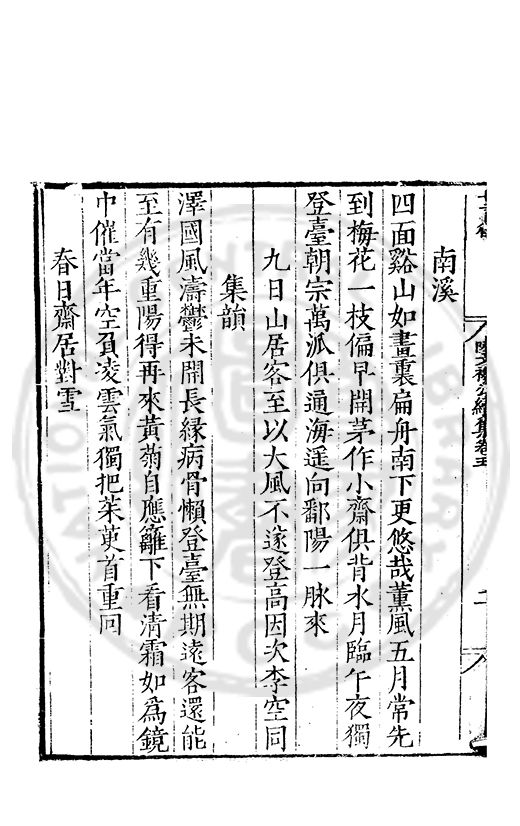 南溪
四面谿山如畫裏扁舟南下更悠哉薰風五月常先
到梅花一枝偏早開茅作小齋俱背水月臨午夜獨
登臺朝宗萬派俱通海遥向鄱陽一脉來
九日山居客至以大風不遂登高因次李空同
集韻
澤國風濤鬱未開長緣病骨懶登臺無期遠客還能
至有幾重陽得再來黃菊自應籬下看清霜如爲鏡
中催當年空負凌雲氣獨把茱萸首重回
春日齋居對雪